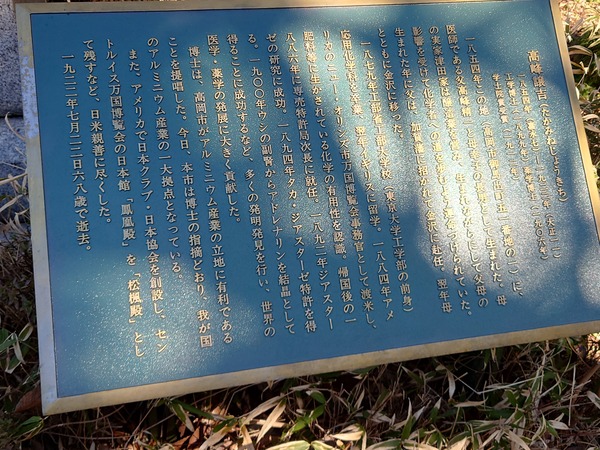 高峰譲吉（たかみねじょうきち）
一八五四年（嘉永七）〜一九二二年（大正一一）
工学博士（一八九九年）、薬学博士（一九〇六年）
学士院賞受賞（一九一二年）
一八五四年この地（高岡市御馬出町
医師である父高峰精一、母幸子の長男として生まれた。母
の実家津田家は醸造業を営み、生まれながらにして父母の
影響を受けて「化学者」への道を
生まれた年に父は、加賀藩に招かれて金沢に赴任、翌年母
とともに金沢に移った。
一八七九年工部省工部大学校（東京大学工学部の前身）
応用化学科を卒業、翌年イギリスに留学。一八八四年アメ
リカのニューオーリンズ市万国博覧会事務官として渡米し、
肥料等に生かされている化学の有用性を認識。帰国後の一
八八六年に専売特許局次長に就任、一八九二年ジアスター
ゼの研究に成功。一八九四年タカ・ジアスターゼ特許を得
る。一九〇〇年ウシの副腎からアドレナリンを結晶として
得ることに成功するなど、多くの発明発見を行い、世界の
医学・薬学の発展に大きく貢献した。
博士は、高岡市がアルミニウム産業の立地に有利である
ことを提唱した。今日、本市は博士の指摘どおり、我が国
のアルミニウム産業の一大拠点となっている。
また、アメリカで日本クラブ・日本協会を創設し、セン
トルイス万国博覧会の日本館「鳳凰殿」を「松楓殿」とし
て残すなど、日米親善に尽くした。
一九二二年七月二二日六八歳で逝去。